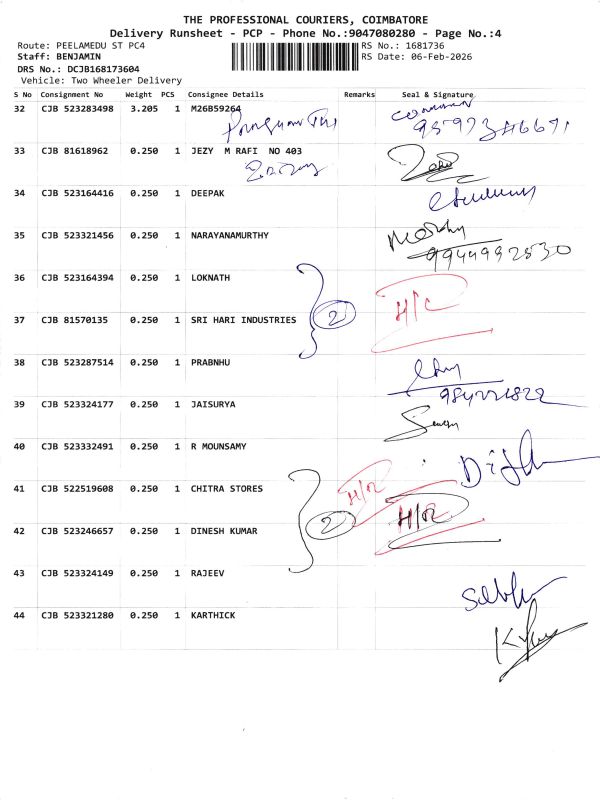 THE PROFESSIONAL COURIERS, COIMBATORE
Delivery Runsheet - PCP - Phone No.:9047080280 - Page No.:4
Route: PEELAMEDU ST PC4
RS No.: 1681736
Staff: BENJAMIN
RS Date: 06-Feb-2026
DRS No.: DCJB168173604
Vehicle: Two Wheeler Delivery
S No Consignment No Weight PCS Consignee Details Remarks Seal & Signature
32 CJB 523283498 3.205 1 M26B59264
33 CJB 81618962 0.250 1 JEZY M RAFI NO 403
34 CJB 523164416 0.250 1 DEEPAK
35 CJB 523321456 0.250 1 NARAYANAMURTHY
9944992530
36 CJB 523164394 0.250 1 LOKNATH
2 H/C
37 CJB 81570135 0.250 1 SRI HARI INDUSTRIES
38 CJB 523287514 0.250 1 PRABNHU
39 CJB 523324177 0.250 1 JAISURYA
40 CJB 523332491 0.250 1 R MOUNSAMY
41 CJB 522519608 0.250 1 CHITRA STORES
2 H/R H/R
42 CJB 523246657 0.250 1 DINESH KUMAR
43 CJB 523324149 0.250 1 RAJEEV
44 CJB 523321280 0.250 1 KARTHICK